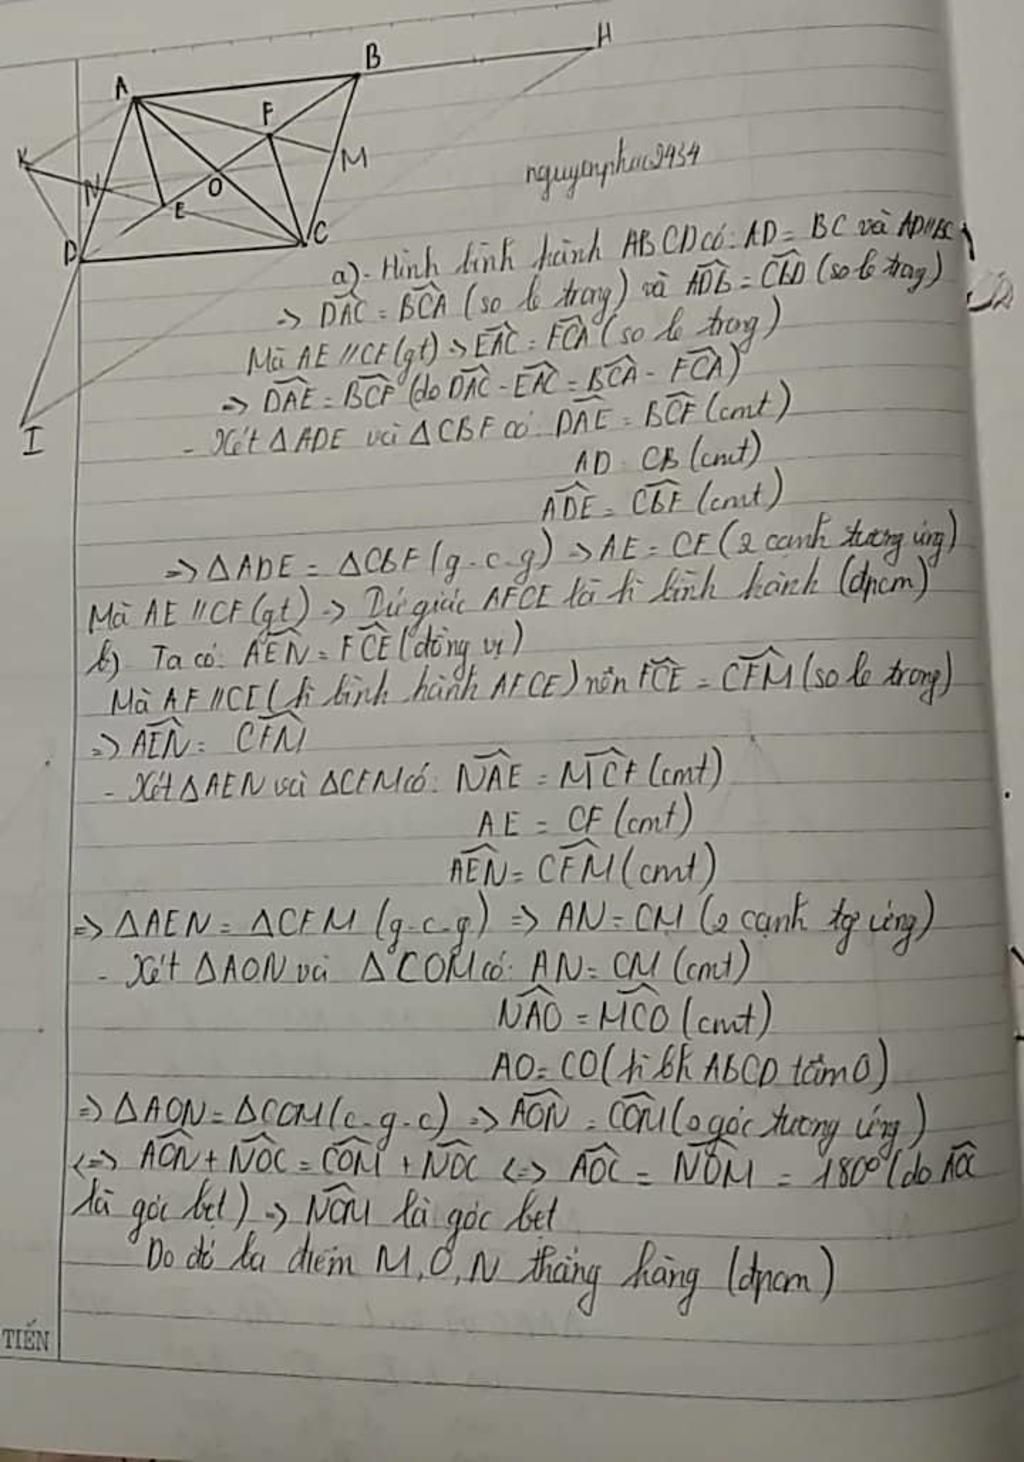 H
B
A
F
K
M
N
O
E
nguyenphuc2434
D
C
I
a)- Hình bình hành ABCD có: AD = BC và AD//BC
=> DAC = BCA (so le trong) và ADB = CBD (so le trong)
Mà AE // CF (gt) => EAC = FCA (so le trong)
=> DAE = BCF (do DAC - EAC = BCA - FCA)
- Xét △ADE và △CBF có: DAE = BCF (cmt)
AD = CB (cmt)
ADE = CBF (cmt)
=> △ADE = △CBF (g-c-g) => AE = CF (2 cạnh tương ứng)
Mà AE // CF (gt) => Tứ giác AFCE là h bình hành (đpcm)
b) Ta có: AEN = FCE (đồng vị)
Mà AF // CE (h bình hành AFCE) nên FCE = CFM (so le trong)
=> AEN = CFM
- Xét △AEN và △CFM có: NAE = MCF (cmt)
AE = CF (cmt)
AEN = CFM (cmt)
=> △AEN = △CFM (g-c-g) => AN = CM (2 cạnh tg ứng)
- Xét △AON và △COM có: AN = CM (cmt)
NAO = MCO (cmt)
AO = CO (h bh ABCD tâm O)
=> △AON = △COM (c-g-c) => AON = COM (2 góc tương ứng)
<=> AON + NOC = COM + NOC <=> AOC = NOM = 180° (do AOC
là góc bẹt) => NOM là góc bẹt
Do đó ba điểm M, O, N thẳng hàng (đpcm)
TIẾN